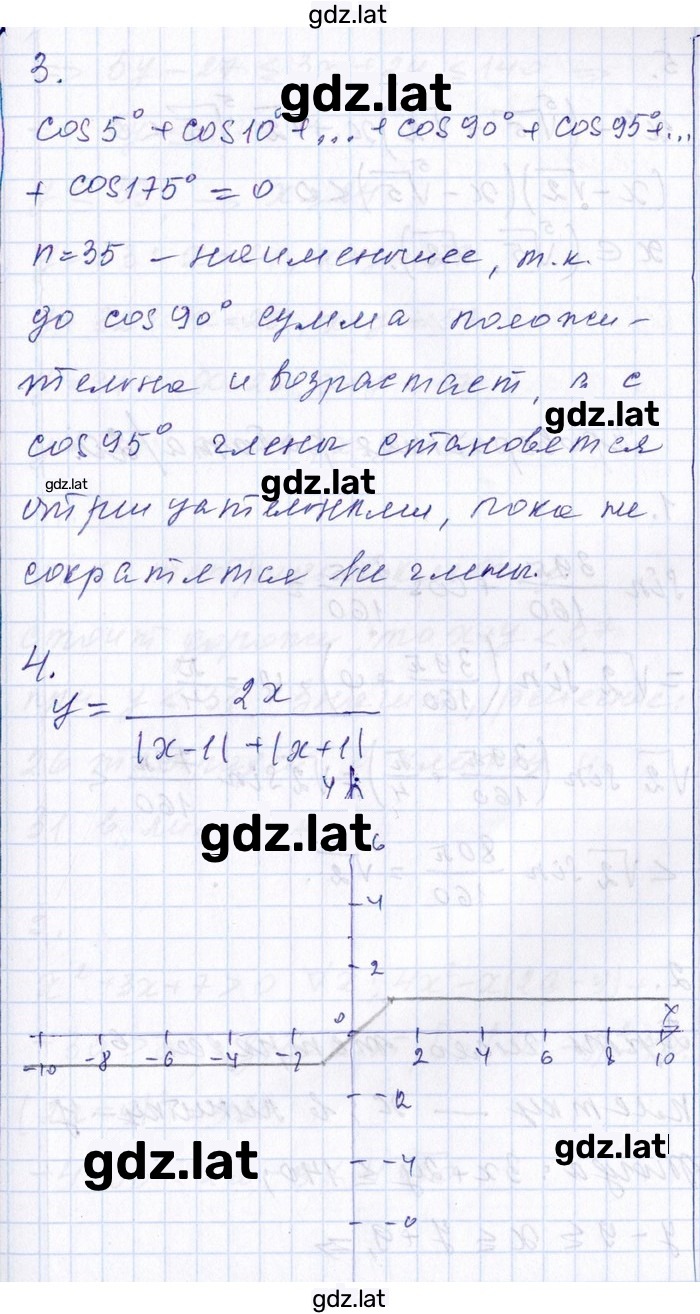 gdz.lat
3.
gdz.lat
cos 5° + cos 10° + ... + cos 90° + cos 95° + ...
+ cos 175° = 0
n = 35 – наименьшее, т.к.
до cos 90° сумма положи-
тельна и возрастает, а с
gdz.lat
cos 95° члены становятся
gdz.lat
gdz.lat
отрицательными, пока не
сократятся все члены.
4.
y = 2x / (|x-1| + |x+1|)
y
gdz.lat
6
4
2
0
x
-10 -8 -6 -4 -2 2 4 6 8 10
-2
gdz.lat
gdz.lat
-4
gdz.lat